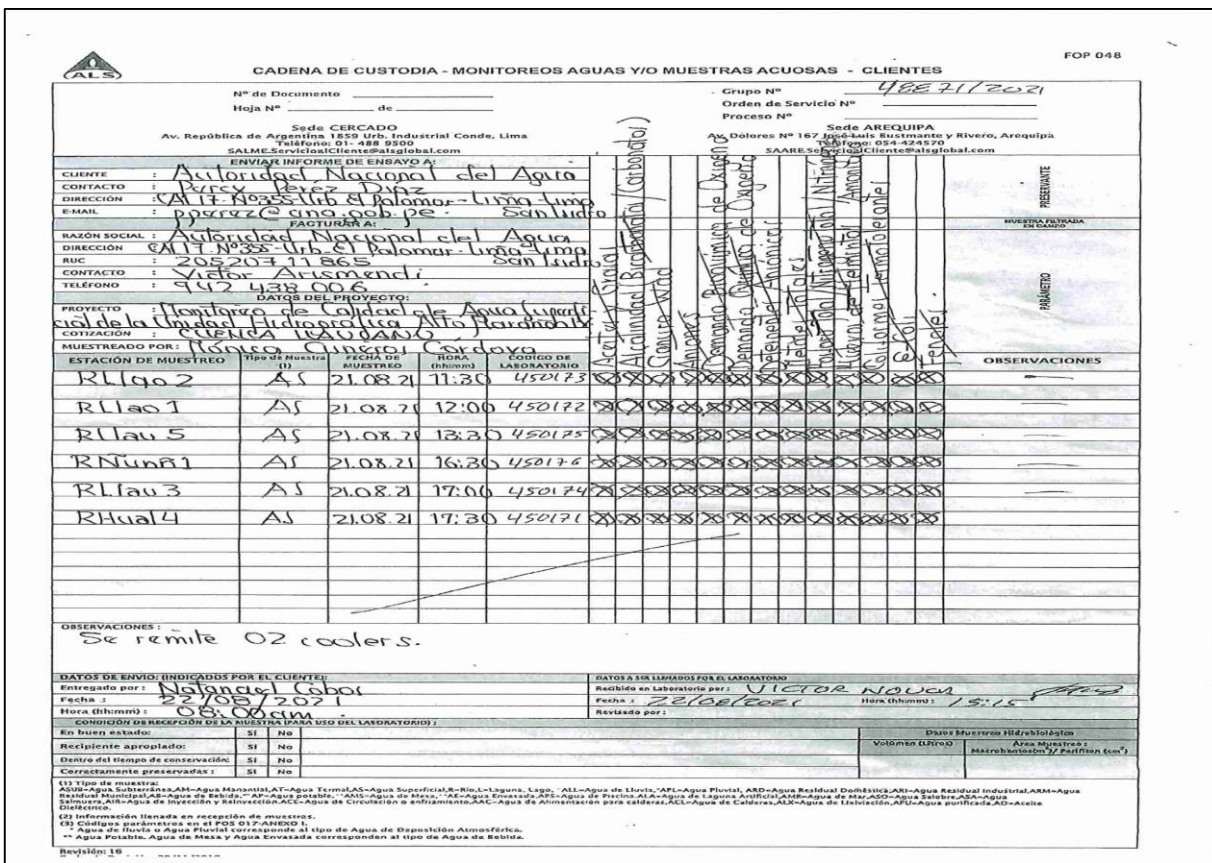 FOP 048
(ALS)
CADENA DE CUSTODIA - MONITOREOS AGUAS Y/O MUESTRAS ACUOSAS - CLIENTES
Nº de Documento
Hoja Nº de
Grupo Nº 48871/2021
Orden de Servicio Nº
Proceso Nº
Sede CERCADO
Av. República de Argentina 1859 Urb. Industrial Conde, Lima
Teléfono: 01- 488 9500
SALME.ServicioalCliente@alsglobal.com
Sede AREQUIPA
Av. Dolores Nº 167 José Luis Bustmante y Rivero, Arequipa
Teléfono: 054-424570
SAARE.ServicioalCliente@alsglobal.com
ENVIAR INFORME DE ENSAYO A:
CLIENTE : Autoridad Nacional del Agua
CONTACTO : Percy Pérez Díaz
DIRECCIÓN : CAl 17 Nº355-Urb El Palomar-Lima-Lima
E-MAIL : pperez@ana.gob.pe. San Isidro
FACTURAR A:
RAZÓN SOCIAL : Autoridad Nacional del Agua
DIRECCIÓN CAl 17-Nº355-Urb El Palomar-Lima-Lima
RUC : 20520711865 San Isidro
CONTACTO : Victor Arismendi
TELÉFONO : 942 438 006
DATOS DEL PROYECTO:
PROYECTO : Monitoreo de Calidad de Agua Superfi
cial de la Unidad Hidrográfica Alto Marañón IV
COTIZACIÓN : CUENCA LLAUCANO
MUESTREADO POR : Mónica Cisneros Córdova
Aceites y Grasas
Alcalinidad (Bicarbonatos/Carbonatos)
Cianuro Wad
Aniones
Demanda Bioquímica de Oxígeno
Demanda Química de Oxígeno
Detergentes Aniónicos
Metales Totales
Coliformes Termotolerantes
E. coli
Fenoles
PRESERVANTE
MUESTRA FILTRADA EN CAMPO
PARÁMETRO
ESTACIÓN DE MUESTREO Tipo de Muestra (1) FECHA DE MUESTREO HORA (hh:mm) CODIGO DE LABORATORIO OBSERVACIONES
RLlao2 AS 21.08.21 11:30 450173
RLlao1 AS 21.08.21 12:00 450172
RLlau5 AS 21.08.21 13:30 450175
RNunR1 AS 21.08.21 16:30 450176
RLlau3 AS 21.08.21 17:00 450174
RHual4 AS 21.08.21 17:30 450171
OBSERVACIONES :
Se remite 02 coolers.
DATOS DE ENVIO: (INDICADOS POR EL CLIENTE):
Entregado por : Natanael Cobos
Fecha : 22/08/2021
Hora (hh:mm) : 08:00am.
DATOS A SER LLENADOS POR EL LABORATORIO
Recibido en Laboratorio por : VICTOR
Fecha : 22/08/2021 Hora (hh:mm) : 15:15
Revisado por :
CONDICIÓN DE RECEPCIÓN DE LA MUESTRA (PARA USO DEL LABORATORIO) :
En buen estado: SI No
Recipiente apropiado: SI No
Dentro del tiempo de conservación: SI No
Correctamente preservadas : SI No
Datos Muestreo Hidrobiológico
Volúmen (Litros) Área Muestreo : Macrobentos(m²)/ Perifiton (cm²)
(1) Tipo de muestra:
ASUB=Agua Subterránea,AM=Agua Manantial,AT=Agua Termal,AS=Agua Superficial,R=Río,L=Laguna, Lago, *ALL=Agua de Lluvia,*APL=Agua Pluvial, ARD=Agua Residual Doméstica,ARI=Agua Residual Industrial,ARM=Agua
Residual Municipal,AB=Agua de Bebida,**AP=Agua potable, **AMS=Agua de Mesa,**AE=Agua Envasada,APS=Agua de Piscina,ALA=Agua de Laguna Artificial,AMR=Agua de Mar,ASO=Agua Salobre,ASA=Agua
Salmuera,AIR=Agua de Inyección y Reinyección,ACE=Agua de Circulación o enfriamiento,AAC=Agua de Alimentación para calderas,ACL=Agua de Calderas,ALX=Agua de Lixiviación,APU=Agua purificada,AD=Aceite
Dieléctrico.
(2) Información llenada en recepción de muestras.
(3) Códigos parámetros en el POS 017-ANEXO I.
* Agua de lluvia o Agua Pluvial corresponde al tipo de Agua de Deposición Atmosférica.
** Agua Potable, Agua de Mesa y Agua Envasada corresponden al tipo de Agua de Bebida.
Revisión: 16